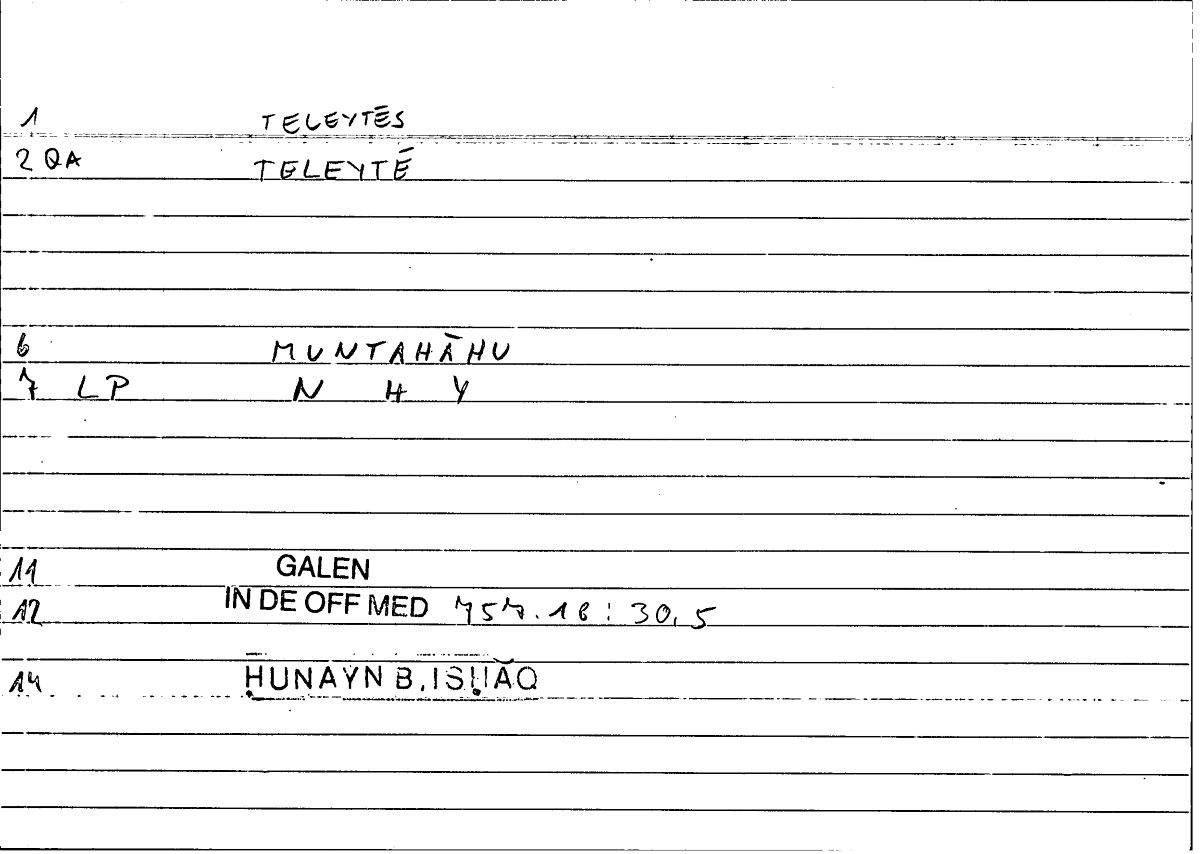 1 TELEYTĒS
2 QA TELEYTĒ
6 MUNTAHĀHU
7 LP N H Y
11 GALEN
12 IN DE OFF MED 757.18 : 30,5
14 ḤUNAYN B. ISḤĀQ